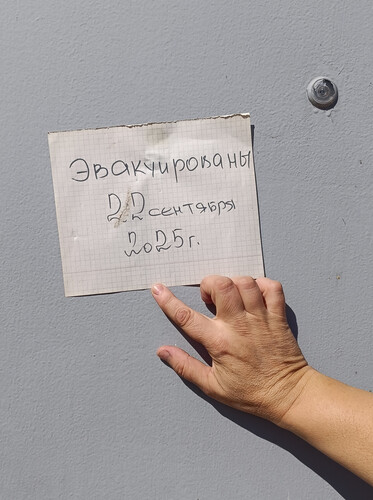 Эвакуированы
22 сентября
2025г.